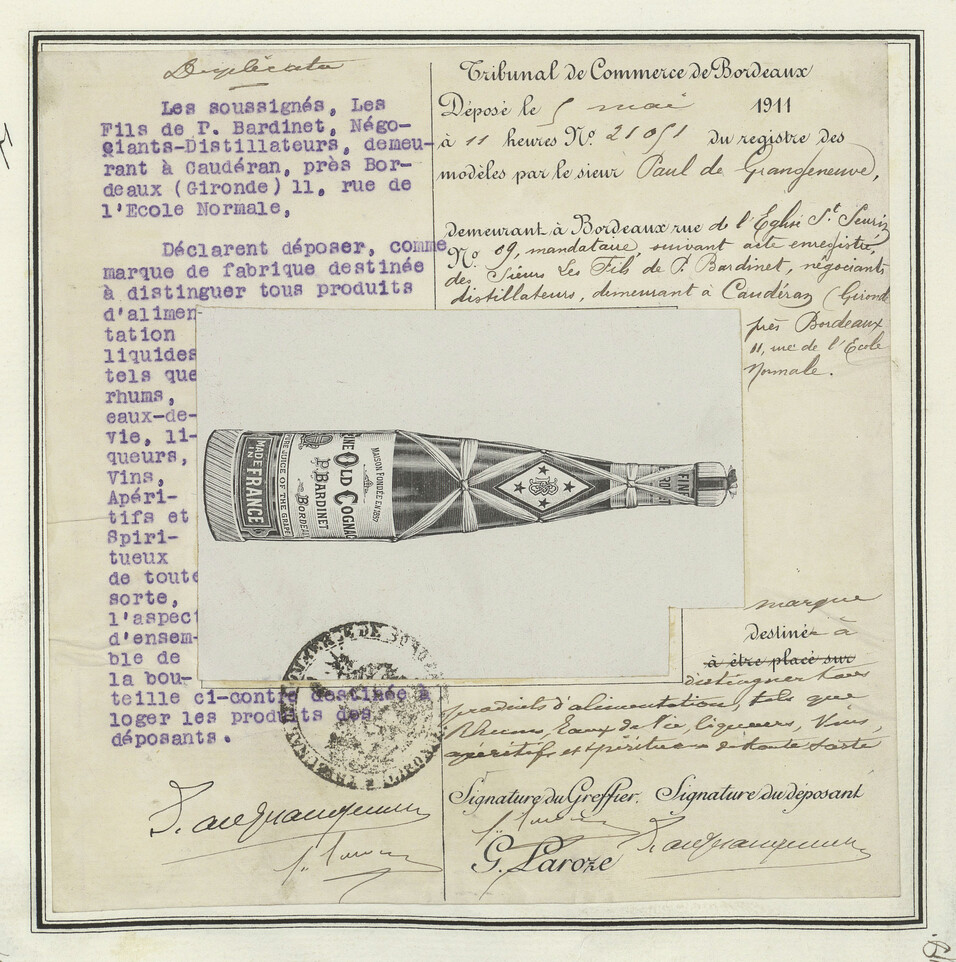 Duplicata
Les soussignés, Les
Fils de P. Bardinet, Négo-
ciants-Distillateurs, demeu-
rant à Caudéran, près Bor-
deaux (Gironde) 11, rue de
l'Ecole Normale,
Déclarent déposer, comme
marque de fabrique destinée
à distinguer tous produits
d'alimen-
tation
liquides
tels que
rhums,
eaux-de-
vie, li-
queurs,
Vins,
Apéri-
tifs et
Spiri-
tueux
de toute
sorte,
l'aspect
d'ensem-
ble de
la bou-
teille ci-contre destinée à
loger les produits des
déposants.
Tribunal de Commerce de Bordeaux
Déposé le 5 mai 1911
à 11 heures No. 21051 du registre des
modèles par le sieur Paul de Grangeneuve,
demeurant à Bordeaux rue de l'Eglise St. Seurin
No. 09, mandataire, suivant acte enregistré,
des Sieurs Les Fils de P. Bardinet, négociants
distillateurs, demeurant à Caudéran (Gironde
près Bordeaux
11, rue de l'Ecole
Normale.
MADE
IN
FRANCE
JUICE OF THE GRAPE
FINE OLD COGNAC
P. BARDINET
BORDEAUX
MAISON FONDÉE EN 1857
FINE
marque
destinée à
à être placé sur
distinguer tous
produits d'alimentation, tels que
Rhums, Eaux de Vie, liqueurs, Vins,
apéritifs et spiritueux de toute sorte
Signature du Greffier. Signature du déposant
G. Laroze